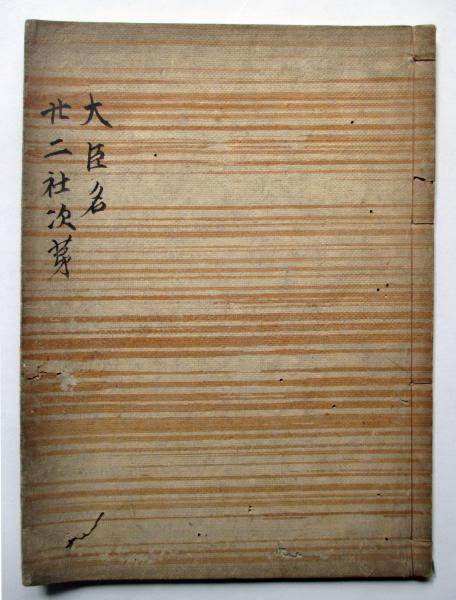 大臣名
廿二社次第